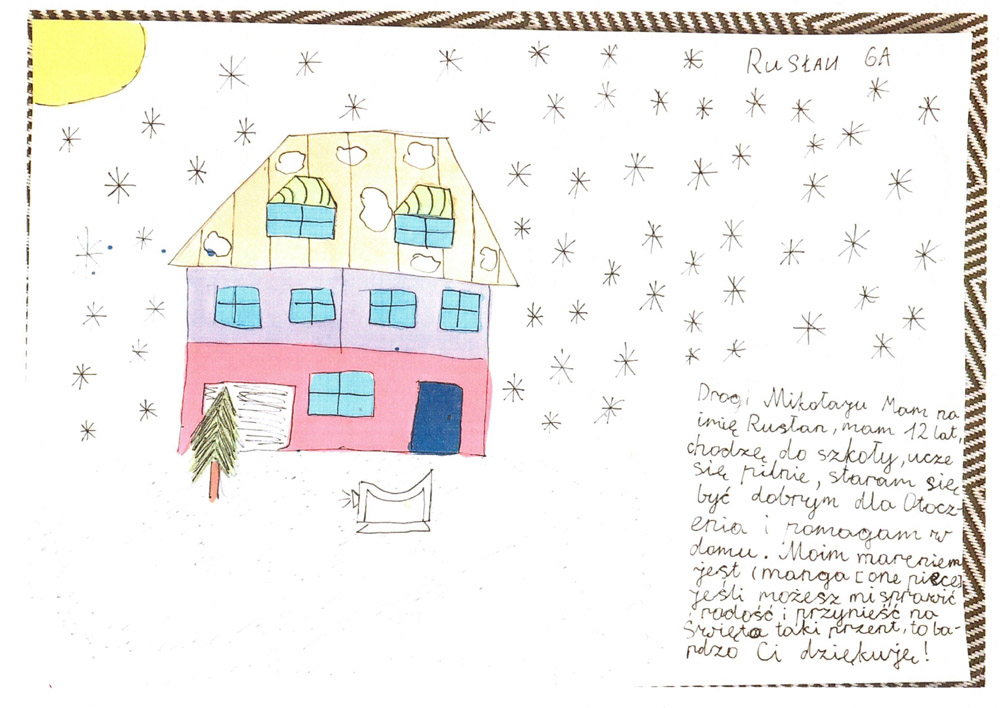 RUSŁAN 6A
Drogi Mikołayu Mam na
imię Rusłan, mam 12 lat,
chodzę do szkoły, ucze
się pilnie, staram się
być dobrym dla Otocz-
enia i pomagam w
domu. Moim marzeniem
jest (manga [one piece]
jeśli możesz mi sprawić
radość i przynieść na
Święta taki przent, to ba-
rdzo Ci dziękuję!